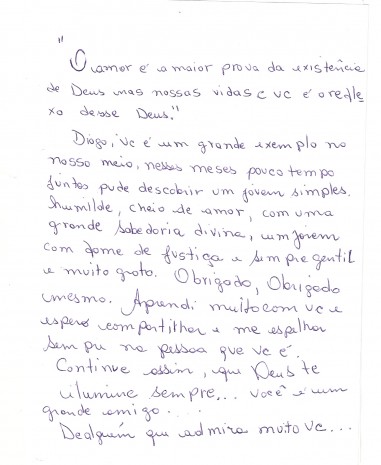 "O amor é a maior prova da existência
de Deus nas nossas vidas e vc é o refle
xo desse Deus."
Diogo, vc é um grande exemplo no
nosso meio, nesses meses pouco tempo
juntos pude descobrir um jovem simples.
humilde, cheio de amor, com uma
grande sabedoria divina, um jovem
com fome de justiça e sempre gentil
e muito grato. Obrigado, Obrigado
mesmo. Aprendi muito com vc e
espero compartilhar e me espelhar
sempre na pessoa que vc é.
Continue assim, que Deus te
ilumine sempre... você é um
grande amigo...
De alguém que admira muito vc...